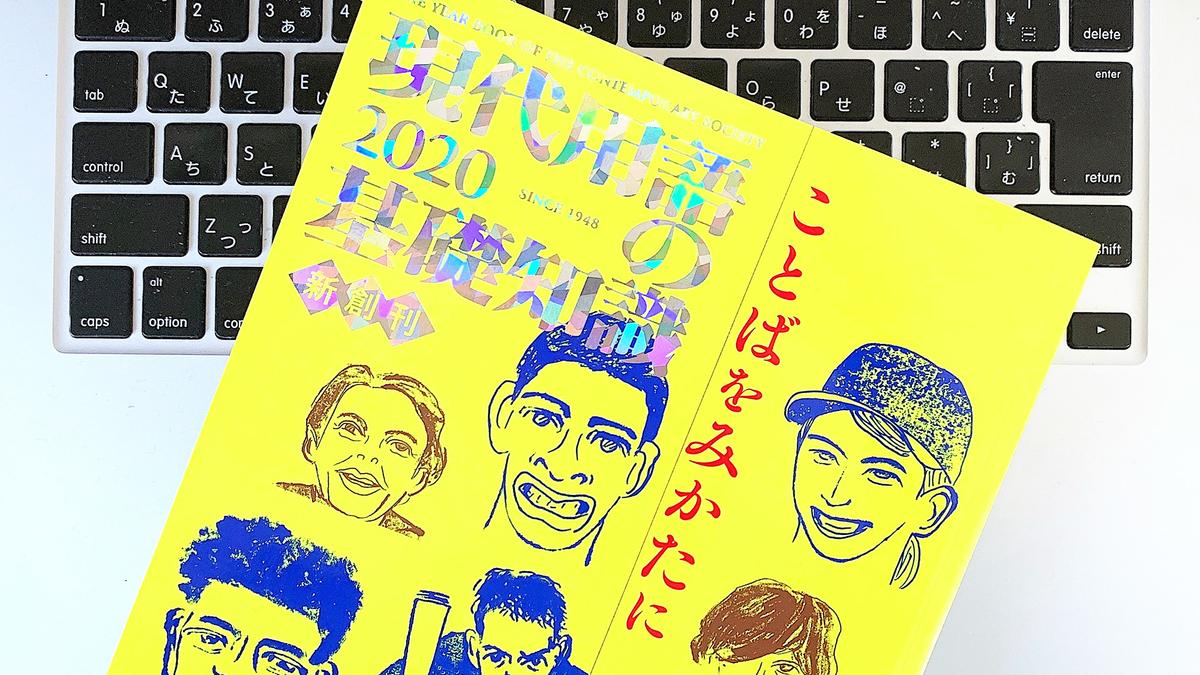 THE YEAR BOOK OF THE CONTEMPORARY SOCIETY
現代用語の
2020
SINCE 1948
基礎知識
新創刊
ことばをみかたに
1 ぬ
2 ふ
3 ぁ あ
4
7 ゃ や
8 ゅ ゆ
9 ょ よ
0 を わ
- ほ
~ ^ へ
| ¥
delete
tab
Q た
W て
E
O ら
P せ
@
{ [
enter
return
control
A ち
S と
*
} ] む
shift
Z っ つ
shift
caps
alt
option